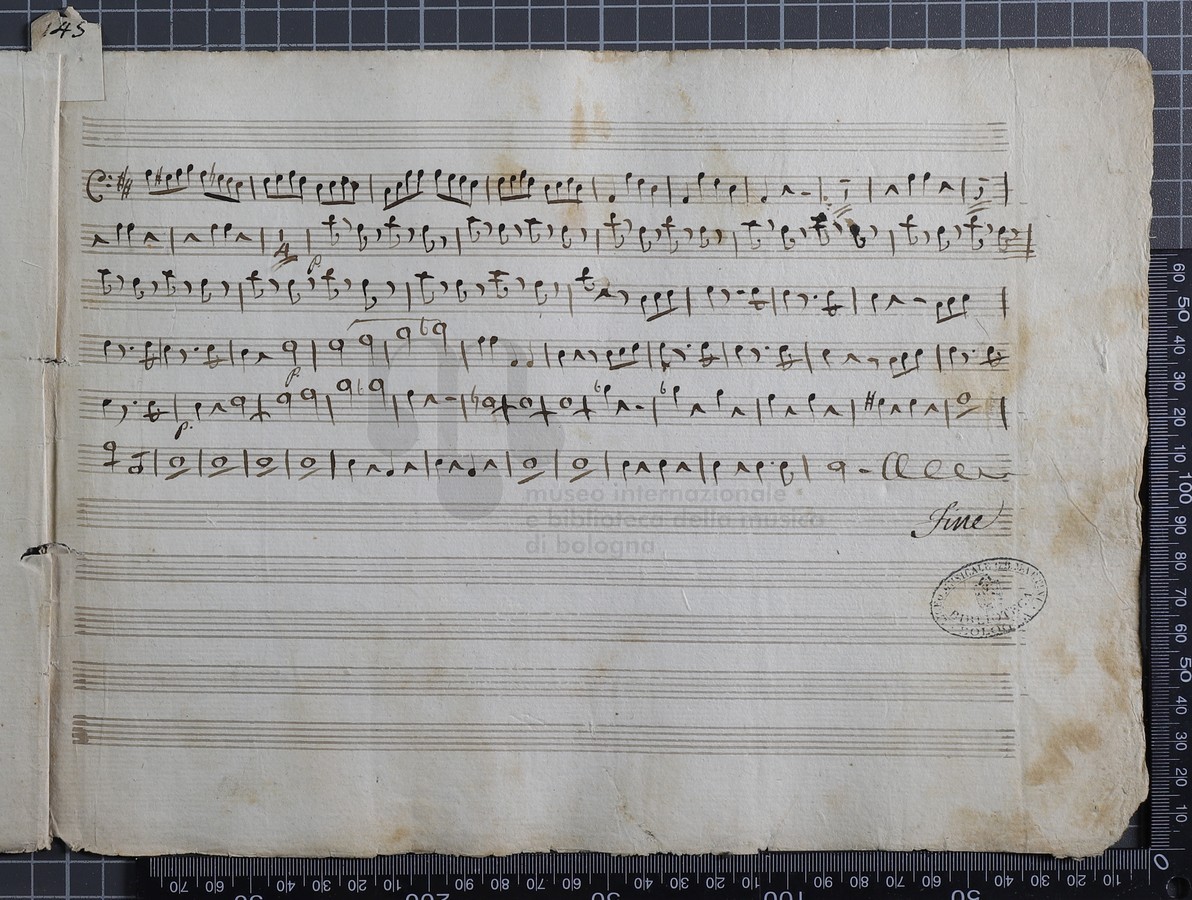 145
4
p.
p.
p.
museo internazionale
e biblioteca della musica
di bologna
Fine
BIBLIOTECA
BOLOGNA